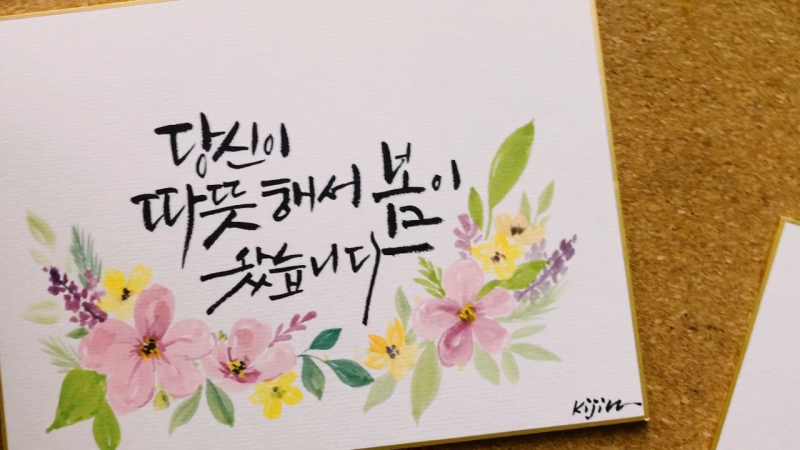 당신이
따뜻해서 봄이
왔습니다
Kijin